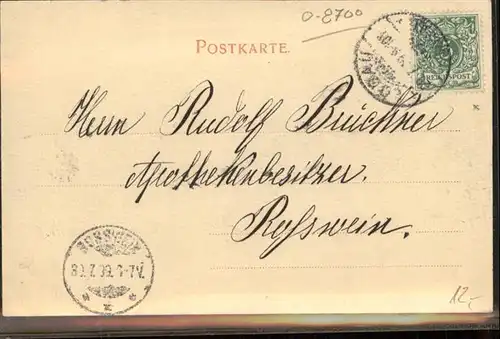 0-8700
POSTKARTE.
REICHSPOST
Herrn Rudolf Bruchner
Apothekenbesitzer.
Rosswein.
ROSSWEIN
12,-